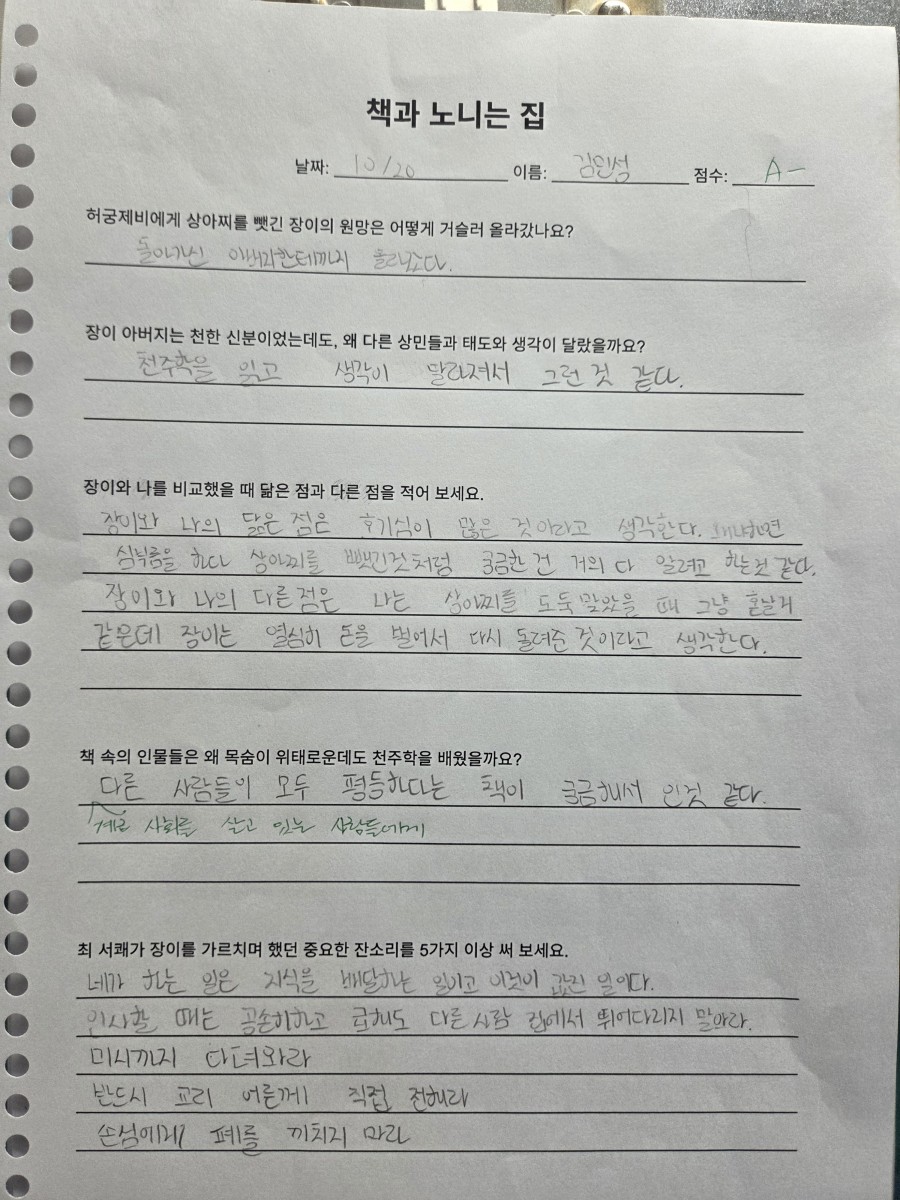 책과 노니는 집
날짜: 10/20 이름: 김민성 점수: A-
허궁제비에게 상아찌를 뺏긴 장이의 원망은 어떻게 거슬러 올라갔나요?
돌아가신 아버지한테까지 올라갔다.
장이 아버지는 천한 신분이었는데도, 왜 다른 상민들과 태도와 생각이 달랐을까요?
천주학을 읽고 생각이 달라져서 그런 것 같다.
장이와 나를 비교했을 때 닮은 점과 다른 점을 적어 보세요.
장이와 나의 닮은 점은 호기심이 많은 것이라고 생각한다. 왜냐하면
심부름을 하다 상아찌를 뺏긴것처럼 궁금한 건 거의 다 알려고 하는것 같다.
장이와 나의 다른점은 나는 상아찌를 도둑맞았을 때 그냥 혼날거
같은데 장이는 열심히 돈을 벌어서 다시 돌려준 것이라고 생각한다.
책 속의 인물들은 왜 목숨이 위태로운데도 천주학을 배웠을까요?
다른 사람들이 모두 평등하다는 책이 궁금해서 인것 같다.
사회를 살고 있는 사람들에게
최 서쾌가 장이를 가르치며 했던 중요한 잔소리를 5가지 이상 써 보세요.
네가 하는 일은 지식을 배달하는 일이고 이것이 값진 일이다.
인사할 때는 공손히하고 급해도 다른 사람 집에서 뛰어다리지 말아라.
미시까지 다녀와라
반드시 교리 어른께 직접 전해라
손님에게 폐를 끼치지 마라